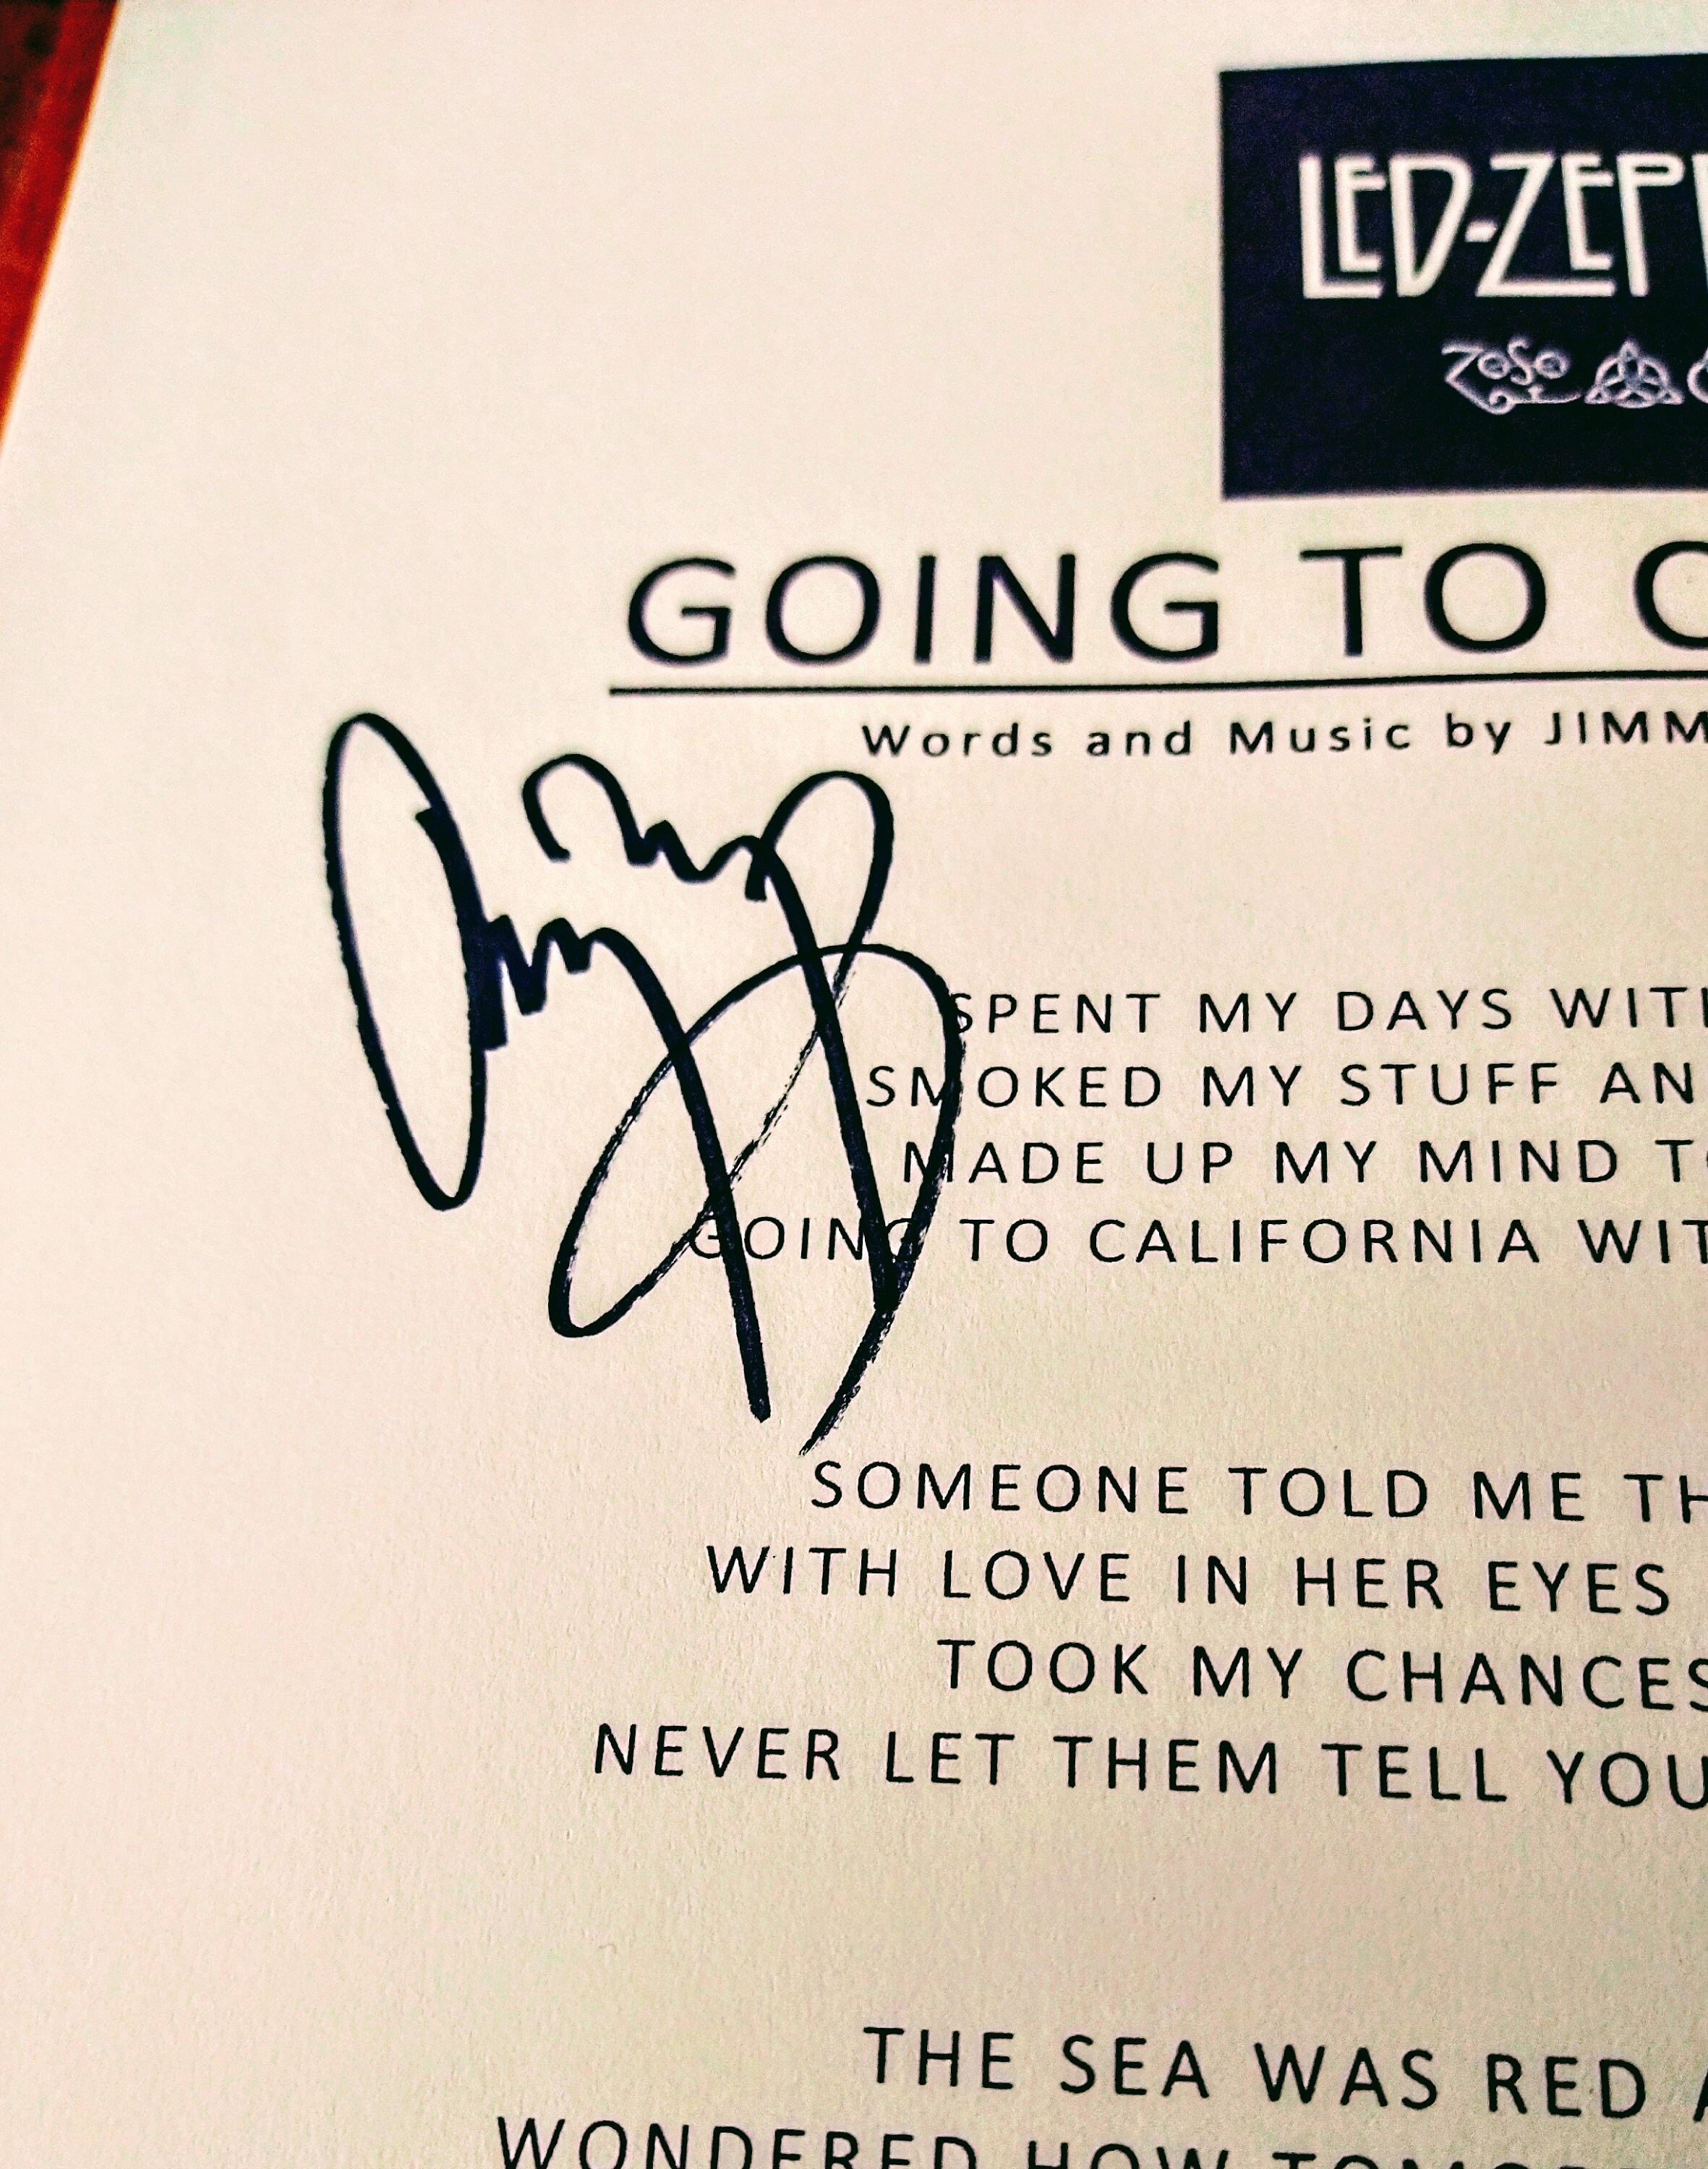 LED-ZEP
ZOSO
GOING TO C
Words and Music by JIMM
SPENT MY DAYS WIT
SMOKED MY STUFF AN
MADE UP MY MIND T
GOING TO CALIFORNIA WIT
SOMEONE TOLD ME TH
WITH LOVE IN HER EYES
TOOK MY CHANCES
NEVER LET THEM TELL YOU
THE SEA WAS RED A
WONDERED HOW TOMOR